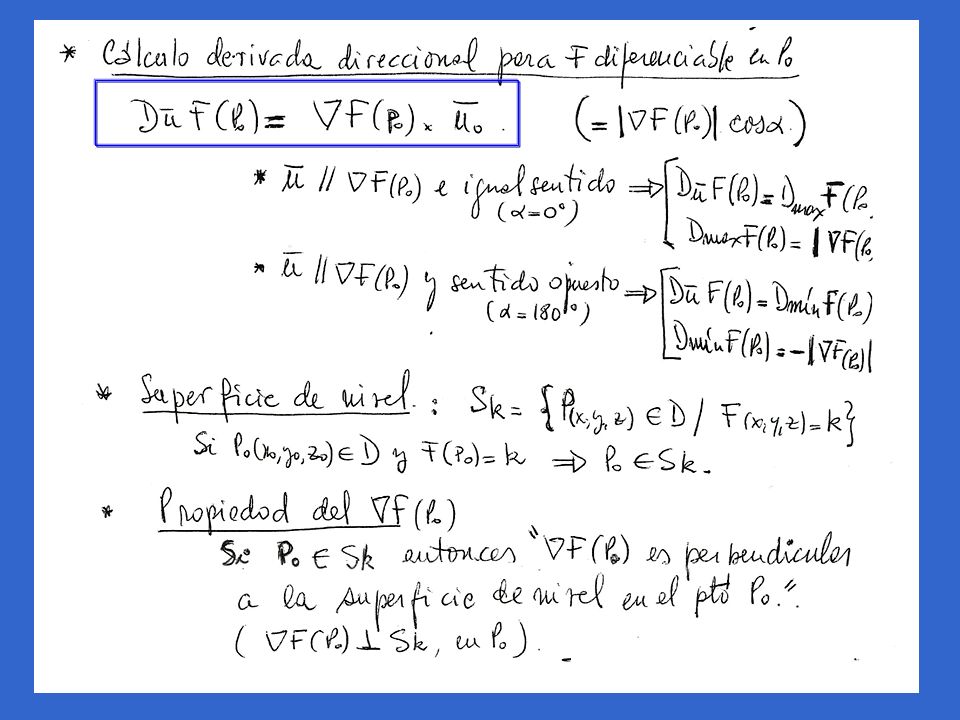 * Cálculo derivada direccional para F diferenciable en P₀
Dū F(P₀) = ∇F(P₀) × ū₀. (= |∇F(P₀)| cosα.)
* ū // ∇F(P₀) e igual sentido ⇒ [ Dū F(P₀) = Dmax F(P₀.
(α=0°) Dmax F(P₀) = |∇F(P₀
* ū // ∇F(P₀) y sentido opuesto ⇒ [ Dū F(P₀) = Dmín F(P₀)
(α=180°) Dmín F(P₀) = -|∇F(P₀)|
* Superficie de nivel : Sk = {P(x,y,z) ∈ D / F(x,y,z)=k}
Si P₀(x₀,y₀,z₀) ∈ D y F(P₀)=k ⇒ P₀ ∈ Sk.
* Propiedad del ∇F(P₀)
Si P₀ ∈ Sk entonces "∇F(P₀) es perpendicular
a la superficie de nivel en el pto P₀."
(∇F(P₀) ⊥ Sk, en P₀).